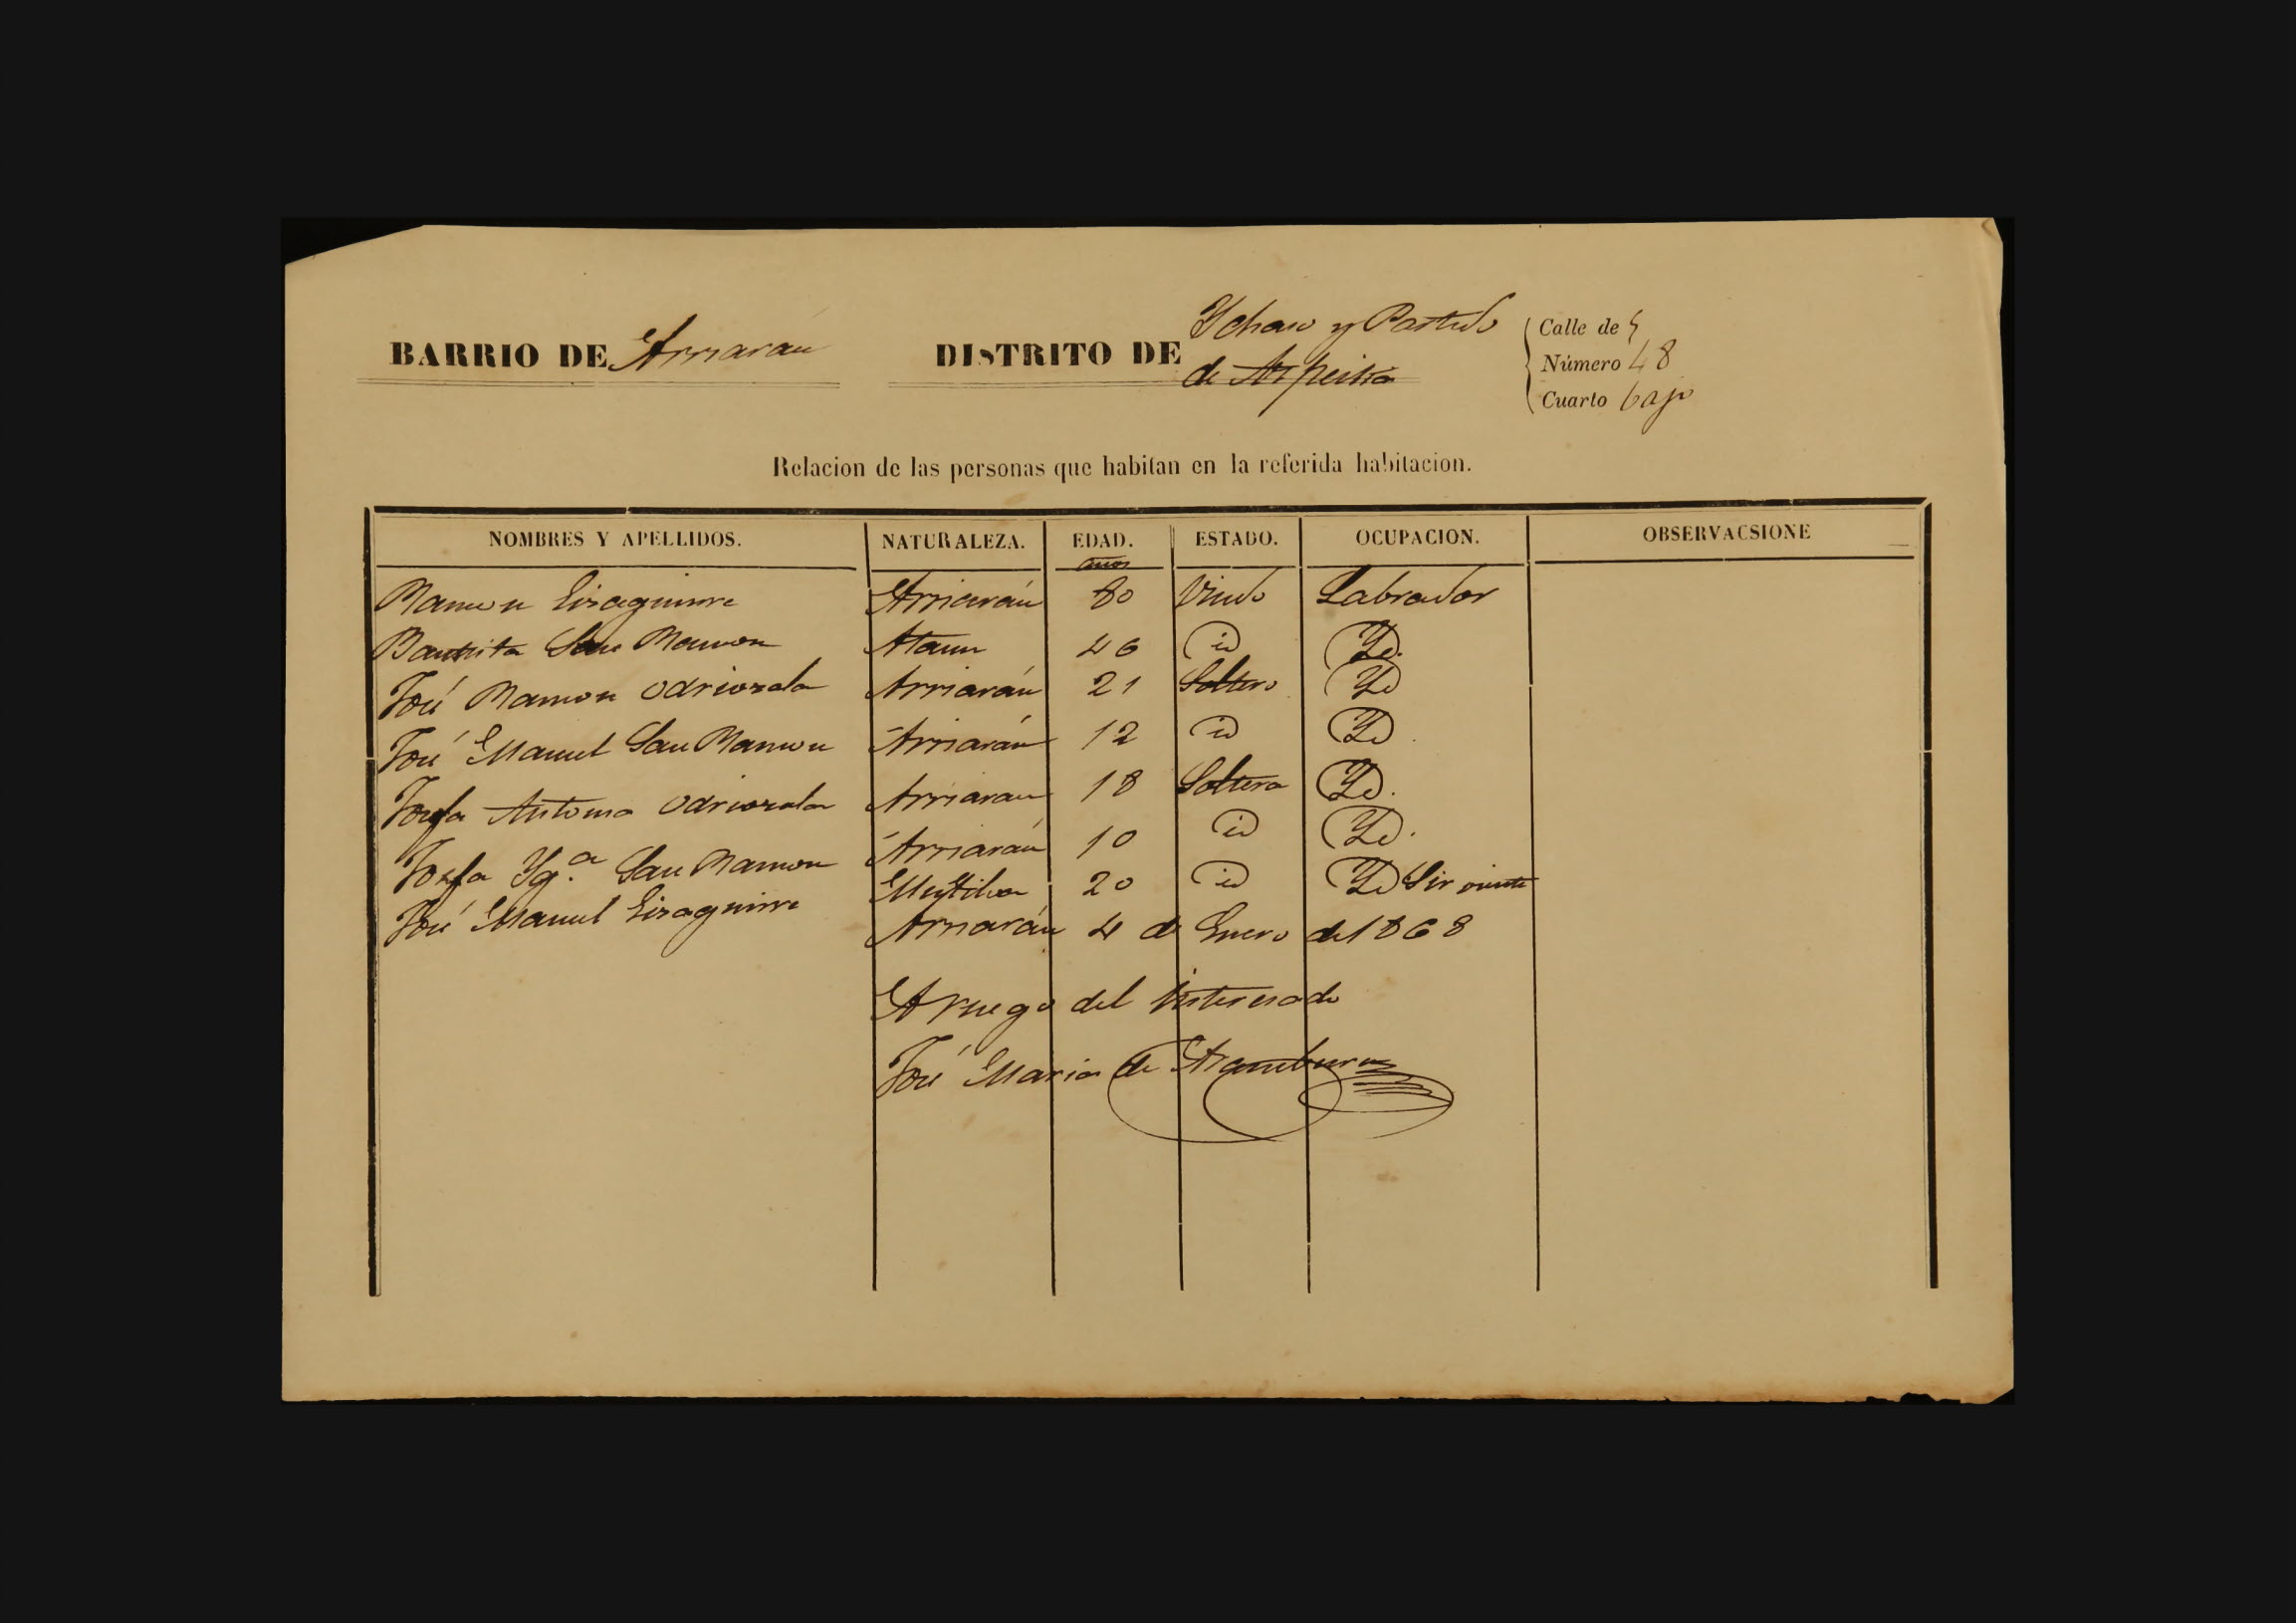 BARRIO DE Arriarán
DISTRITO DE Ychaso y Partido
de Azpeitia
Calle de
Número 48
Cuarto bajo
Relacion de las personas que habitan en la referida habitacion.
NOMBRES Y APELLIDOS. NATURALEZA. EDAD. ESTADO. OCUPACION. OBSERVACSIONE
años
Ramon Eizaguirre Arriarán 80 Viudo Labrador
Bautista San Ramon Ataun 46 id Yd.
José Ramon Odriozola Arriarán 21 Soltero Yd
José Manuel San Ramon Arriarán 12 id Yd
Josefa Antonia Odriozola Arriaran 18 Soltera Yd.
Josefa Yg.ª San Ramon Arriarán 10 id Yd.
José Manuel Eizaguirre Mutiloa 20 id Yd Sirviente
Arriarán 4 de Enero de 1868
A ruego del interesado
José Maria de Aramburu